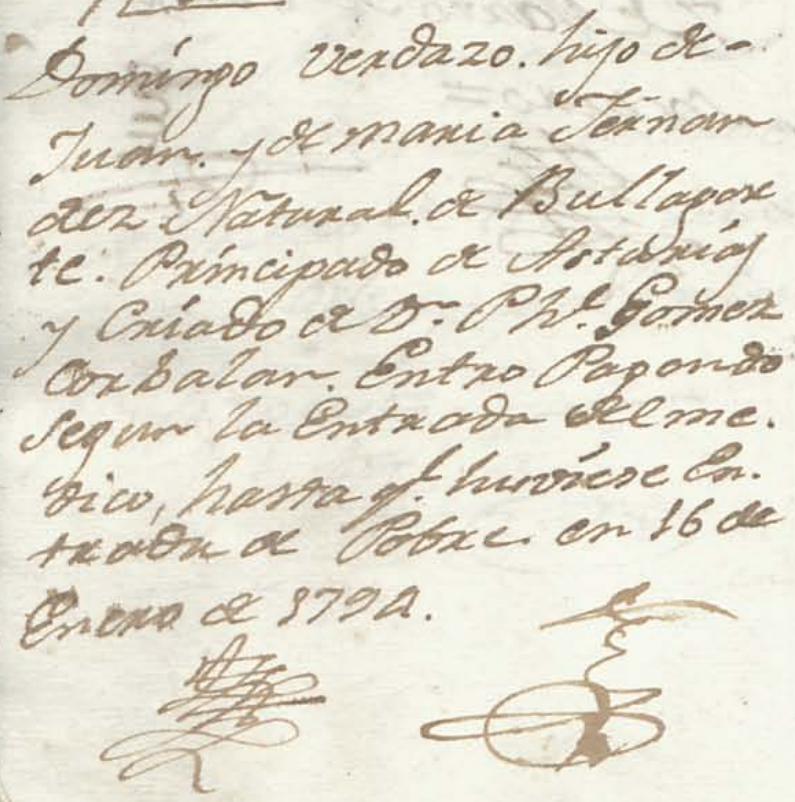 Domingo Verdazo. hijo de-
Juan. y de maria Fernan
dez Natural. de Bullapor
te. Principado de Asturias
y Criado de Dn. Phe. Gomez
Corbalan. Entro Pagando
segun la Entrada del me.
dico, hasta q.e huviese En.
trada de Pobre. en 16 de
Enero de 1794.